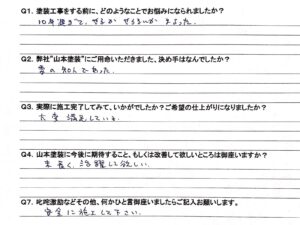 Q1. 塗装工事をする前に、どのようなことでお悩みになられましたか?
10年過ぎて、やるか やらないか まよった。
Q2. 弊社“山本塗装”にご用命いただきました、決め手はなんでしたか?
妻の知人であった。
Q3. 実際に施工完了してみて、いかがでしたか?ご希望の仕上がりになりましたか?
大変 満足している。
Q4. 山本塗装に今後に期待すること、もしくは改善して欲しいところは御座いますか?
末長く、活躍して欲しい。
Q7. 叱咤激励などその他、何かひと言御座いましたらご記入お願いします。
安全に施工して下さい。